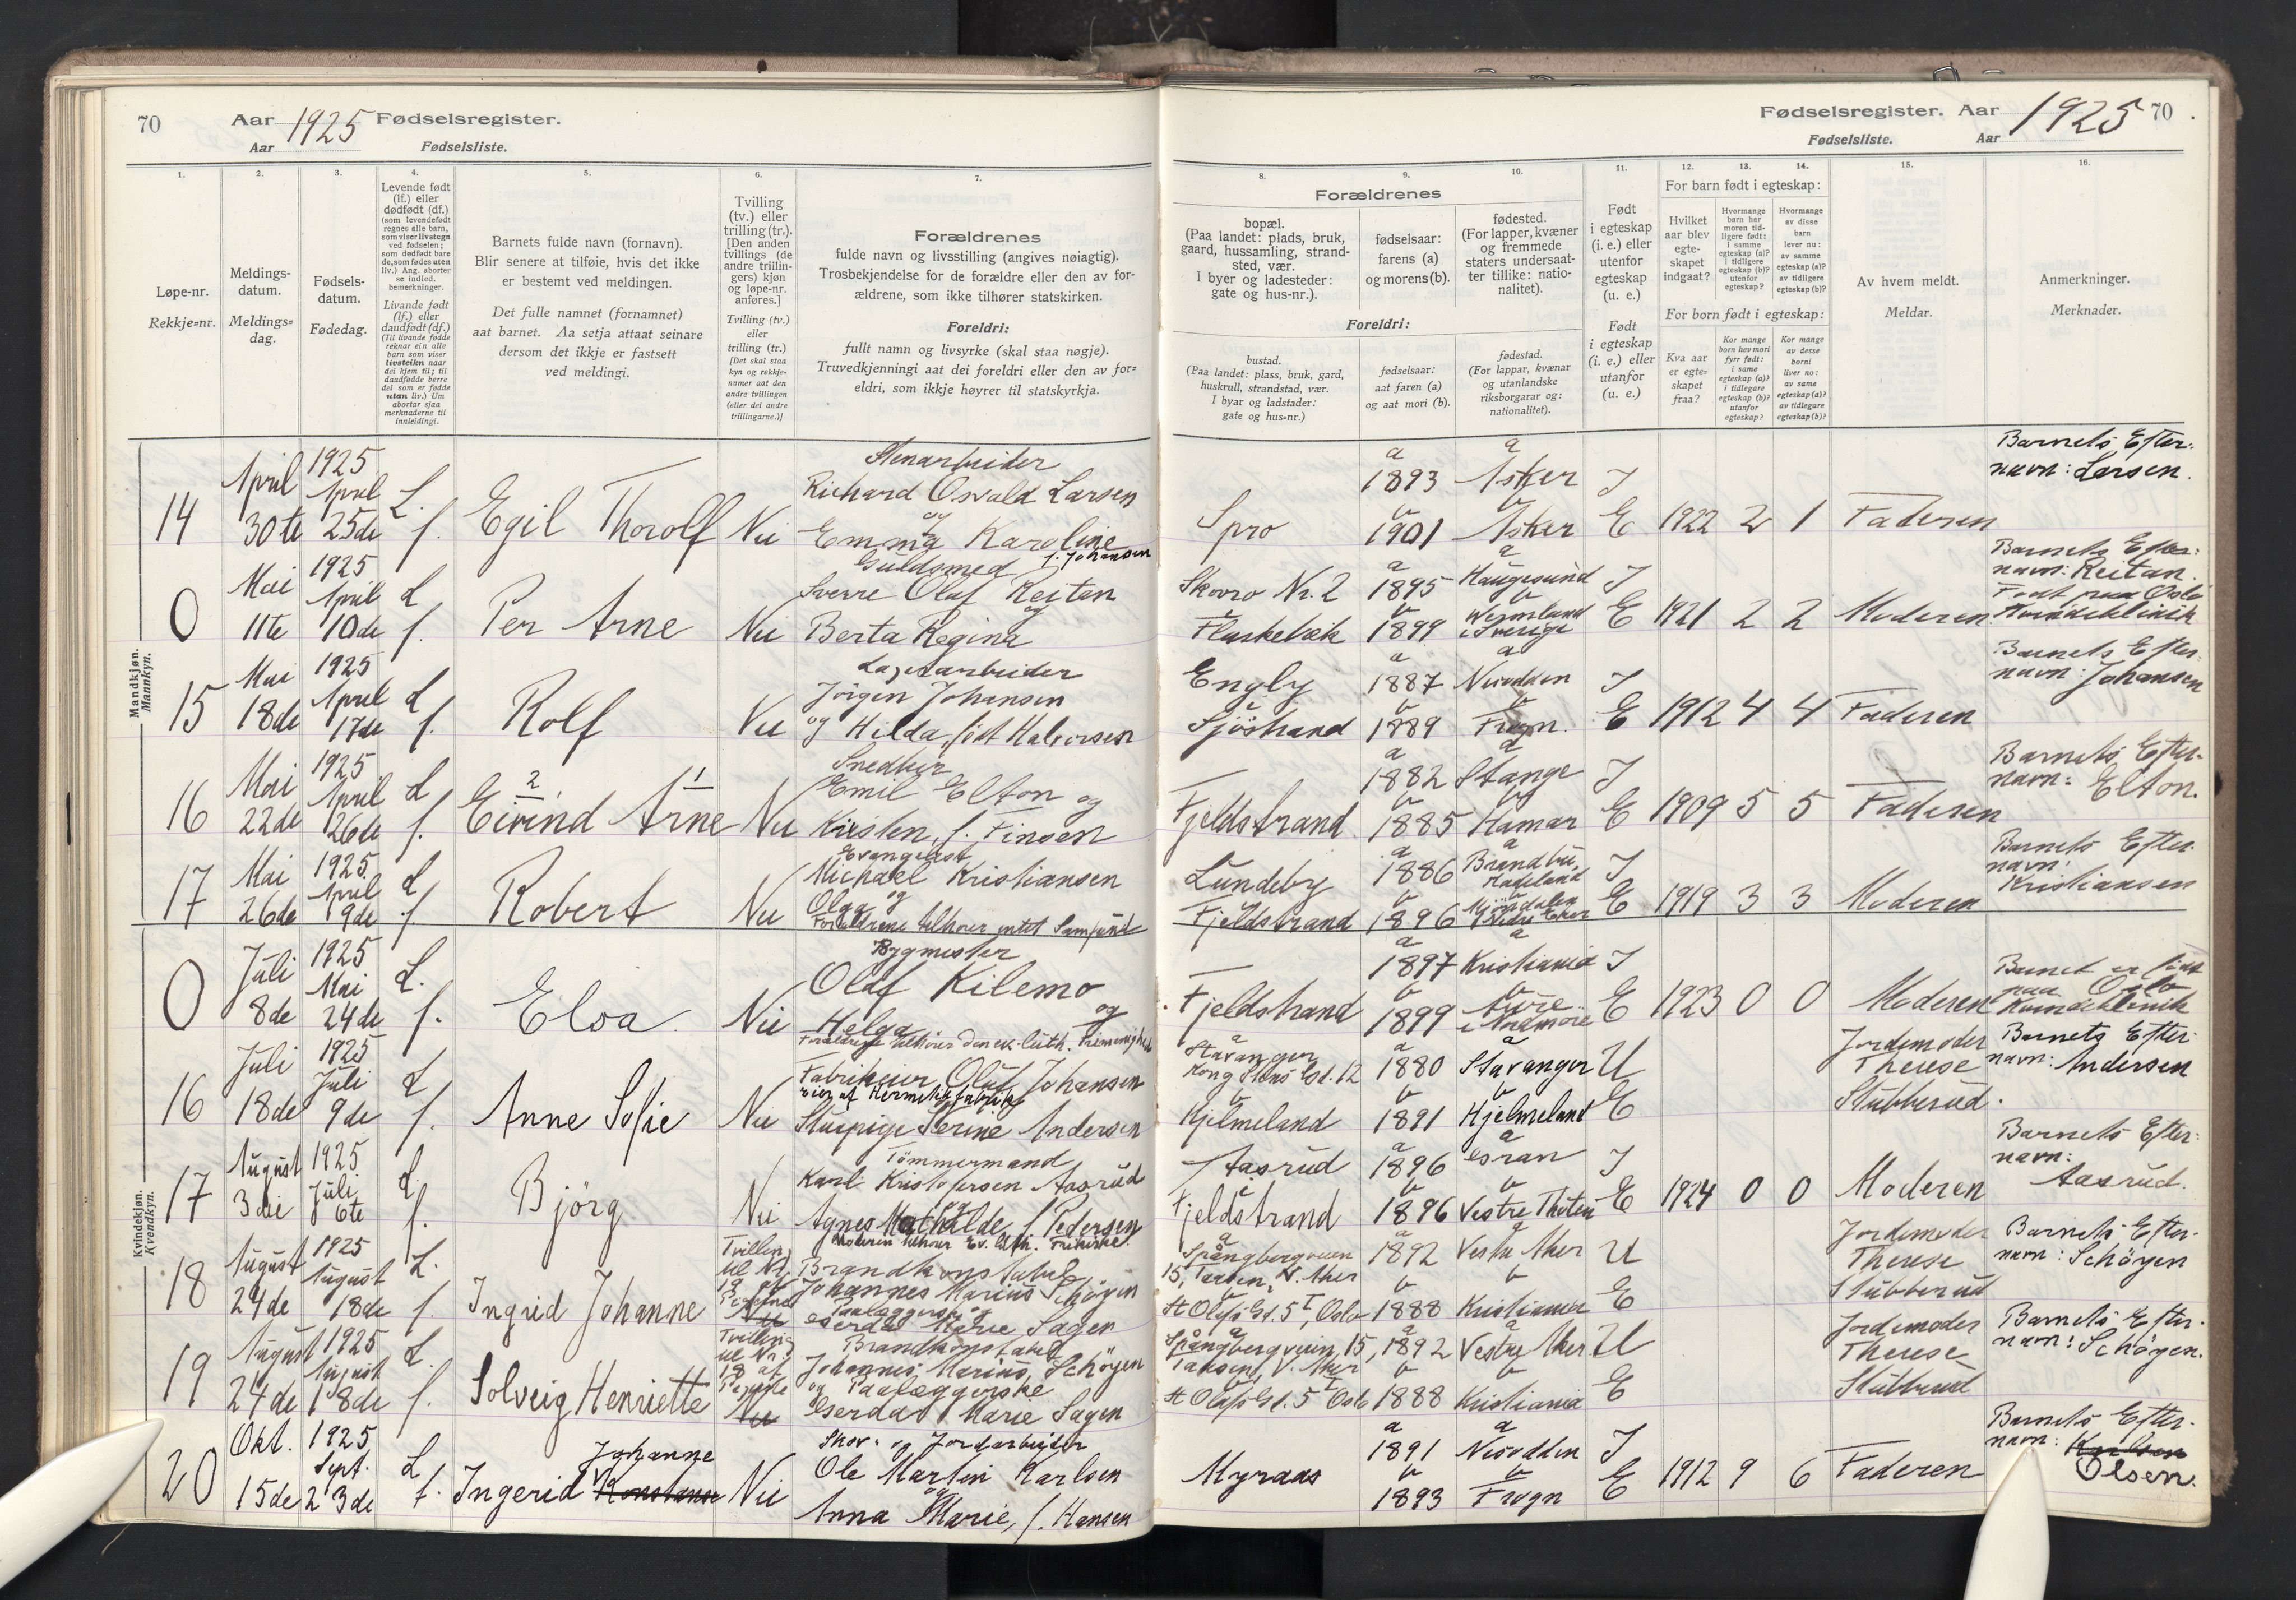 70
Aar 1925 Fødselsregister.
Aar
Fødselsliste.
1.
Løpe-nr.
Rekkje=nr.
2.
Meldings-
datum.
Meldings=
dag.
3.
Fødsels-
datum.
Fødedag.
4.
Levende født
(lf.) eller
dødfødt (df.)
(som levendefødt
regnes alle barn,
som viser livstegn
ved fødselen;
som dødfødt bare
de, som fødes uten
liv.) Ang. aborter
se indled.
bemerkninger.
Livande født
(lf.) eller
daudfødt (df.)
(Til livande fødde
reknar ein alle
barn som viser
livsteikn naar
dei kjem til; til
daudfødde berre
dei som er fødde
utan liv.) Um
abortar sjaa
merknaderne til
innleidingi.
5.
Barnets fulde navn (fornavn).
Blir senere at tilføie, hvis det ikke
er bestemt ved meldingen.
Det fulle namnet (fornamnet)
aat barnet. Aa setja attaat seinare
dersom det ikkje er fastsett
ved meldingi.
6.
Tvilling
(tv.) eller
trilling (tr.).
[Den anden
tvillings (de
andre trillin-
gers) kjøn
og løpe-nr.
anføres.]
Tvilling (tv.)
eller
trilling (tr.)
[Det skal staa
kyn og rekkje-
numer aat den
andre tvillingen
(eller dei andre
trillingarne.)]
7.
Forældrenes
fulde navn og livsstilling (angives nøiagtig).
Trosbekjendelse for de forældre eller den av for-
ældrene, som ikke tilhører statskirken.
Foreldri:
fullt namn og livsyrke (skal staa nøgje).
Truvedkjenningi aat dei foreldri eller den av for=
eldri, som ikkje høyrer til statskyrkja.
Mandkjøn.
Mannkyn.
14
April 30te
1925 April 25de
L. f.
Egil Thorolf
Nei
Stenarbeider
Richard Osvald Larsen
og
Emma Karoline
f. Johansen
0
Mai 11te
1925 April 10de
L f.
Per Arne
Nei
Guldsmed
Sverre Olaf Reitan
og
Berta Regina
15
Mai 18de
1925 April 17de
L f.
Rolf
Nei
Lagerarbeider
Jörgen Johansen
og Hilda, født Halvorsen
16
Mai 22de
1925 April 26de
L f.
2 1
Eivind Arne
Nei
Snedker
Emil Elton og
Kirsten, f. Finsen
17
Mai 26de
1925 April 9de
L f.
Robert
Nei
Evangelist
Michael Kristiansen
og
Olga
Forældrene tilhører intet Samfund
Kvindekjøn.
Kvendkyn.
0
Juli 8de
1925 Mai 24de
L. f.
Elsa
Nei
Bygmester
Olaf Kilemo
og
Helga
Forældrene tilhører den ev. luth. Frimenighed
16
Juli 18de
1925 Juli 9de
L f.
Anne Sofie
Nei
Fabrikeier Oluf Johansen
eier af Hermetikfabrik
Stuepige Serine Andersen
17
August 3die
1925 Juli 6te
L. f.
Bjørg
Nei
Tömmermand
Karl Kristofersen Aasrud
Agnes Mathilde f. Pedersen
Moderen tilhører Ev. luth. Frikirke.
18
August 24de
1925 August 18de
L. f.
Ingrid Johanne
Tvilling
til Nr.
19 af
Nei
Brandkonstabel
Johannes Marius Schøyen
og
Paalæggerske
Gerda Marie Sagen
19
August 24de
1925 August 18de
L. f.
Solveig Henriette
Tvilling
til Nr.
18 af
Nei
Brandkonstabel
Johannes Marius Schöyen
og Paalæggerske
Gerda Marie Sagen
20
Okt. 15de
1925 Sept. 23de
L f.
Johanne
Ingerid Konstanse
Nei
Skov- og Jordarbeider
Ole Martin Karlsen
og
Anna Marie, f. Hansen
Fødselsregister. Aar 1925 70
Fødselsliste. Aar
Forældrenes
8.
bopæl.
(Paa landet: plads, bruk,
gaard, hussamling, strand-
sted, vær.
I byer og ladesteder:
gate og hus-nr.).
9.
fødselsaar:
farens (a)
og morens (b).
10.
fødested.
(For lapper, kvæner
og fremmede
staters undersaat-
ter tillike: natio-
nalitet).
Foreldri:
bustad.
(Paa landet: plass, bruk, gard,
huskrull, strandstad, vær.
I byar og ladstader:
gate og hus=nr.)
fødselsaar:
aat faren (a)
og aat mori (b).
fødestad.
(For lappar, kvænar
og utanlandske
riksborgarar og:
nationalitet).
11.
Født
i egteskap
(i. e.) eller
utenfor
egteskap
(u. e.)
Født
i egteskap
(i. e.) eller
utanfor
(u. e.)
12. 13. 14.
For barn født i egteskap:
Hvilket
aar blev
egte-
skapet
indgaat?
Hvormange
barn har
moren tid-
ligere født:
i samme
egteskap (a)?
i tidligere
egteskap (b)?
utenfor
egteskap?
Hvormange
av disse
barn
lever nu:
av samme
egteskap (a)?
av tidligere
egteskap (b)?
For born født i egteskap:
Kva aar
er egte-
skapet
fraa?
Kor mange
born hev mori
fyrr født:
i same
egteskap (a)?
i tidlegare
egteskap (b)?
utanfor
egteskap?
Kor mange
av desse
borni
liver no:
av same
egteskap (a)?
av tidlegare
egteskap (b)?
15.
Av hvem meldt.
Meldar.
16.
Anmerkninger.
Merknader.
Spro
a 1893 b 1901
a Asker b Asker
I E
1922 2 1
Faderen
Barnets Efter-
navn: Larsen.
Skovro Nr. 2
Flaskebæk
a 1895 b 1899
a Haugesund b Wermland
i Sverige
I E
1921 2 2
Moderen
Barnets Efter-
navn: Reitan.
Født paa Oslo
Kvindeklinik
Engly
Sjöstrand
a 1887 b 1889
a Nesodden b Frogn.
I E
1912 4 4
Faderen
Barnets Efter-
navn: Johansen
Fjeldstrand
a 1882 b 1885
a Stange b Hamar
I E
1909 5 5
Faderen
Barnets Efter-
navn: Elton.
Lundeby
Fjeldstrand
a 1886 b 1896
a Brandbu,
Hadeland
b Mjöndalen
Nedre Eker
I E
1919 3 3
Moderen
Barnets Efter-
navn:
Kristiansen
Fjeldstrand
a 1897 b 1899
a Kristiania b Aure
i Nordmøre
I E
1923 0 0
Moderen
Barnet er født
paa Oslo
Kvindeklinik
a Stavanger
Kong Gd. 12
b Hjelmeland
a 1880 b 1891
a Stavanger b Hjelmeland
U E
Jordemoder
Therese
Stubberud.
Barnets Efter-
navn: Andersen
Aasrud
Fjeldstrand
a 1896 b 1896
a Gran b Vestre Thoten
I E
1924 0 0
Moderen
Barnets Efter-
navn:
Aasrud.
a Spångbergveien
15, Taasen, V. Aker
b St Olafs Gd. 5 I, Oslo
a 1892 b 1888
a Vestre Aker b Kristiania
U E
Jordemoder
Therese
Stubberud
Barnets Efter-
navn: Schöyen
a Spångbergveien 15,
Taasen, V. Aker
b St Olafs Gd. 5 I Oslo
a 1892 b 1888
a Vestre Aker b Kristiania
U E
Jordemoder
Therese
Stubberud
Barnets Efter-
navn: Schöyen.
Myraas
a 1891 b 1893
a Nesodden b Frogn
I E
1912 9 6
Faderen
Barnets Efter-
navn: Karlsen
Olsen.